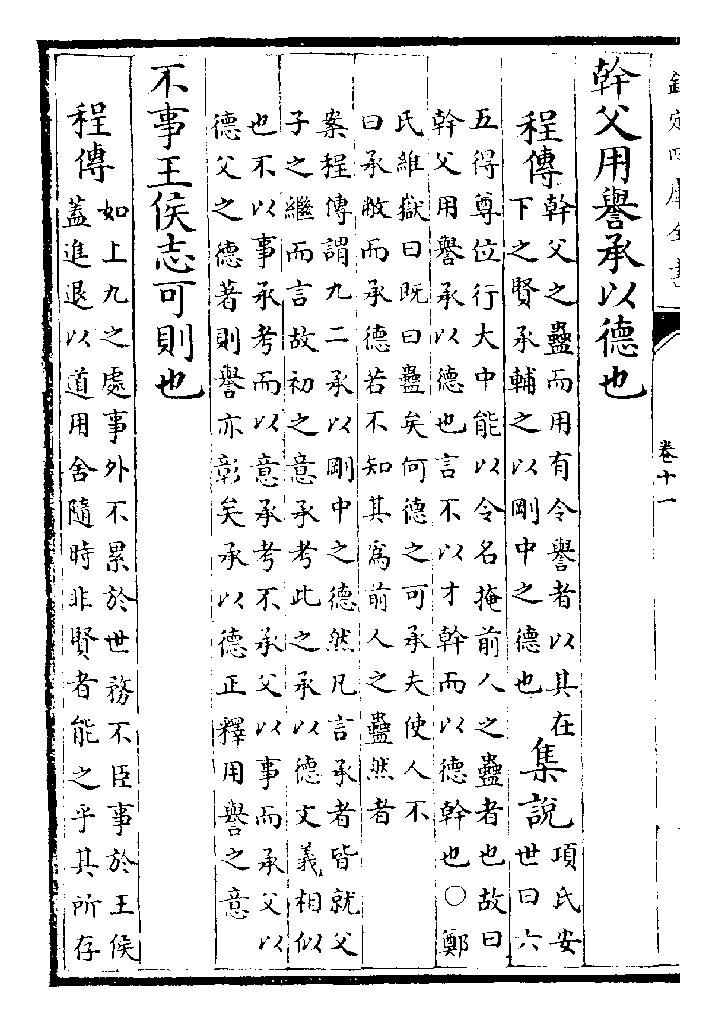 欽定四庫全書
卷十一
幹父用譽承以德也
程傳幹父之蠱而用有令譽者以其在
下之賢承輔之以剛中之德也集說項氏安
世曰六
五得尊位行大中能以令名掩前人之蠱者也故曰
幹父用譽承以德也言不以才幹而以德幹也〇鄭
氏維嶽曰既曰蠱矣何德之可承夫使人不
曰承敝而承德若不知其為前人之蠱然者
案程傳謂九二承以剛中之德然凡言承者皆就父
子之繼而言故初之意承考此之承以德文義相似
也不以事承考而以意承考不承父以事而承父以
德父之德著則譽亦彰矣承以德正釋用譽之意
不事王侯志可則也
程傳如上九之處事外不累於世務不臣事於王侯
蓋進退以道用舍隨時非賢者能之乎其所存